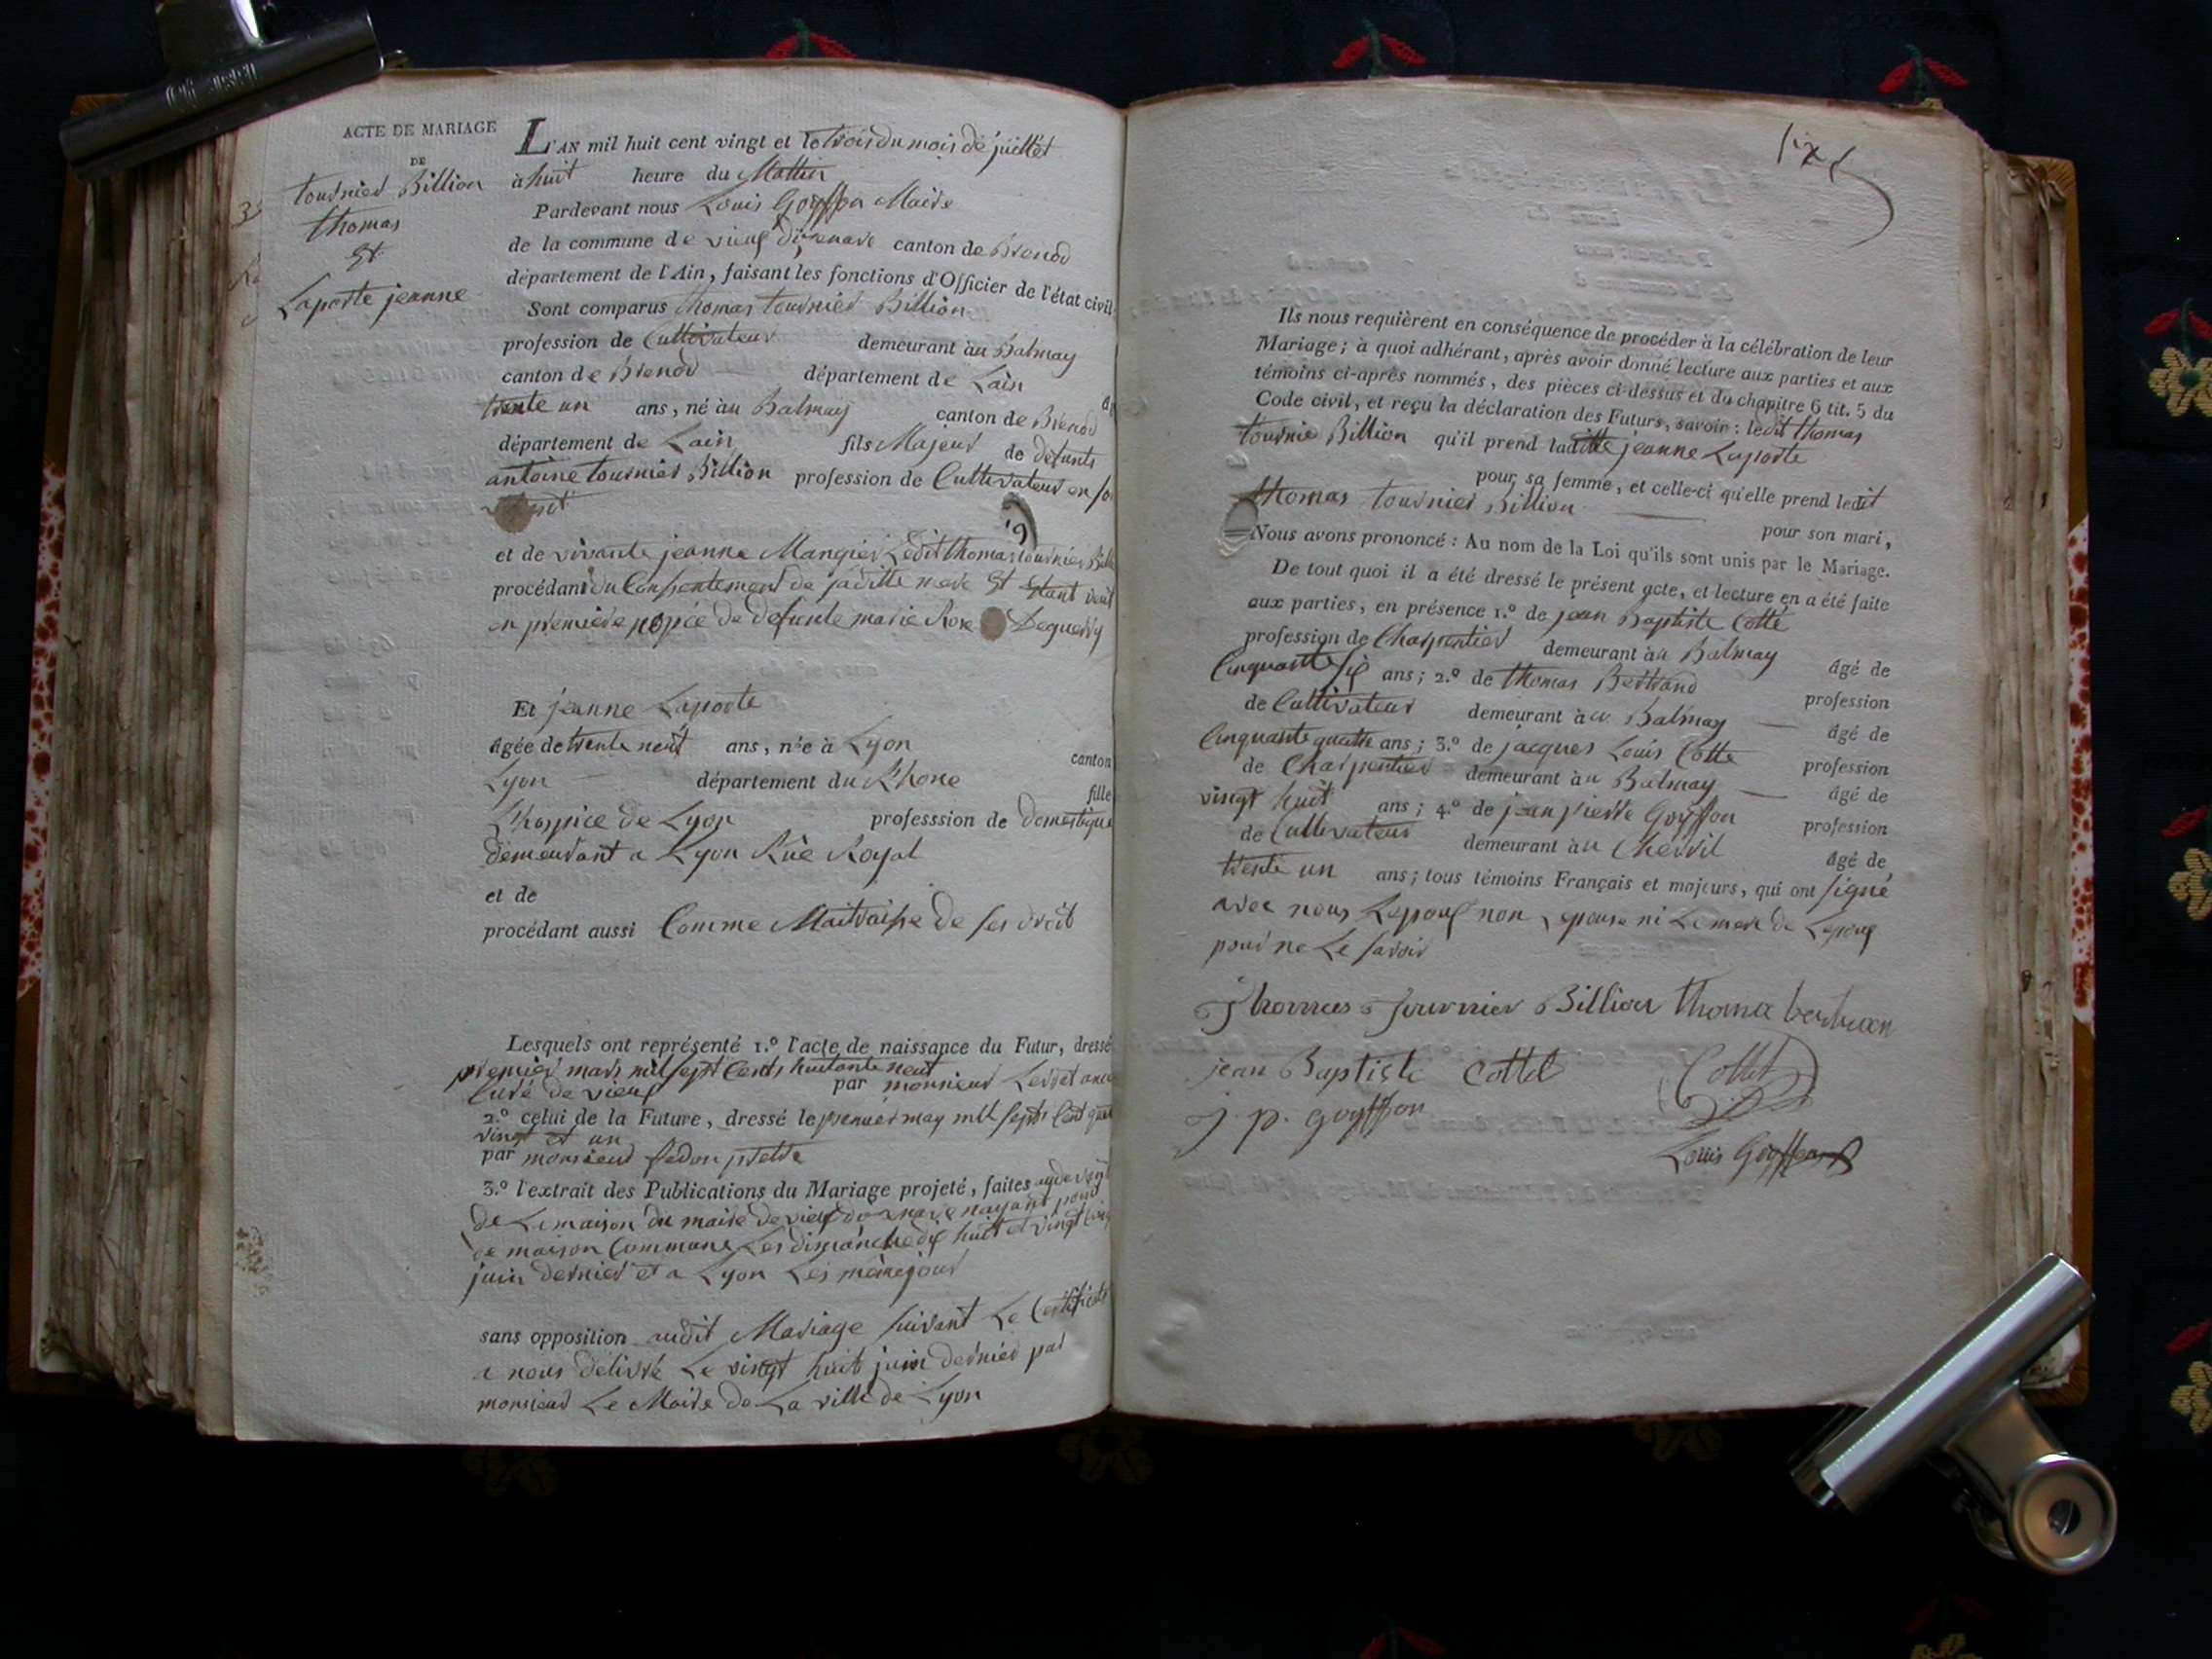 ACTE DE MARIAGE
DE
tournier Billion
thomas
Et
Laporte jeanne
L'AN mil huit cent vingt et le trois du mois de juillet
à huit heure du Mattin
Pardevant nous Louis Goyffon Maire
de la commune de vieux d'izenave canton de Brenod
département de l'Ain, faisant les fonctions d'Officier de l'état civil
Sont comparus thomas tournier Billion
profession de Cultivateur demeurant àu Balmay
canton de Brenod département de Lain
trente un ans, né àu Balmay canton de Brenod
département de Lain fils Majeur de defunts
antoine tournier Billion profession de Cultivateur en
et de vivante jeanne Mangier Ledit thomas tournier
procédant du Consentement de saditte mere Et Etant
en premiere nopce de defunte marie Rose Deguerry
Et jeanne Laporte
âgée de trente neuf ans, née à Lyon canton
Lyon département du Rhone fille
L'hospice de Lyon professsion de domestique
demeurant a Lyon Rüe Royal
et de
procédant aussi Comme Maitraisse de ses droit
Lesquels ont représenté 1.º l'acte de naissance du Futur, dressé
premier mars mil sept Cents huitante neuf
Curé de vieux par monsieur
2.º celui de la Future, dressé le premier may mil sept Cent
vingt et un
par monsieur fedon pretre
3.º l'extrait des Publications du Mariage projeté, faites
de Le maison du maire de vieux d'izenave nayant point
de maison Commune Les dimanche dix huit et vingt
juin dernier et a Lyon Les même jour
sans opposition audit Mariage suivant Le Certificats
a nous délivré Le vingt huit juin dernier par
monsieur Le Maire de La ville de Lyon
six
Ils nous requièrent en conséquence de procéder à la célébration de leur
Mariage; à quoi adhérant, après avoir donné lecture aux parties et aux
témoins ci-après nommés, des pièces ci-dessus et du chapitre 6 tit. 5 du
Code civil, et reçu la déclaration des Futurs, savoir: ledit thomas
tournie Billion qu'il prend laditte jeanne Laporte
pour sa femme, et celle-ci qu'elle prend ledit
thomas tournier Billion pour son mari,
Nous avons prononcé: Au nom de la Loi qu'ils sont unis par le Mariage.
De tout quoi il a été dressé le présent acte, et lecture en a été faite
aux parties, en présence 1.º de jean Baptiste Cotte
profession de Charpentier demeurant àu Balmay âgé de
Cinquante six ans; 2.º de thomas Bertrand profession
de Cultivateur demeurant àu Balmay âgé de
Cinquante quatre ans; 3.º de jacques Louis Cotte profession
de Charpentier demeurant àu Balmay âgé de
vingt huit ans; 4.º de jean pierre Goyffon profession
de Cultivateur demeurant àu Chevril âgé de
trente un ans; tous témoins Français et majeurs, qui ont signé
avec nous Lepoux non Lepouse ni Le mere de Lepoux
pour ne Le savoir
Thomas Tournier Billion thoma bertran
jean Baptiste Cottet Cottet
j. p. goyffon
Louis Goyffon